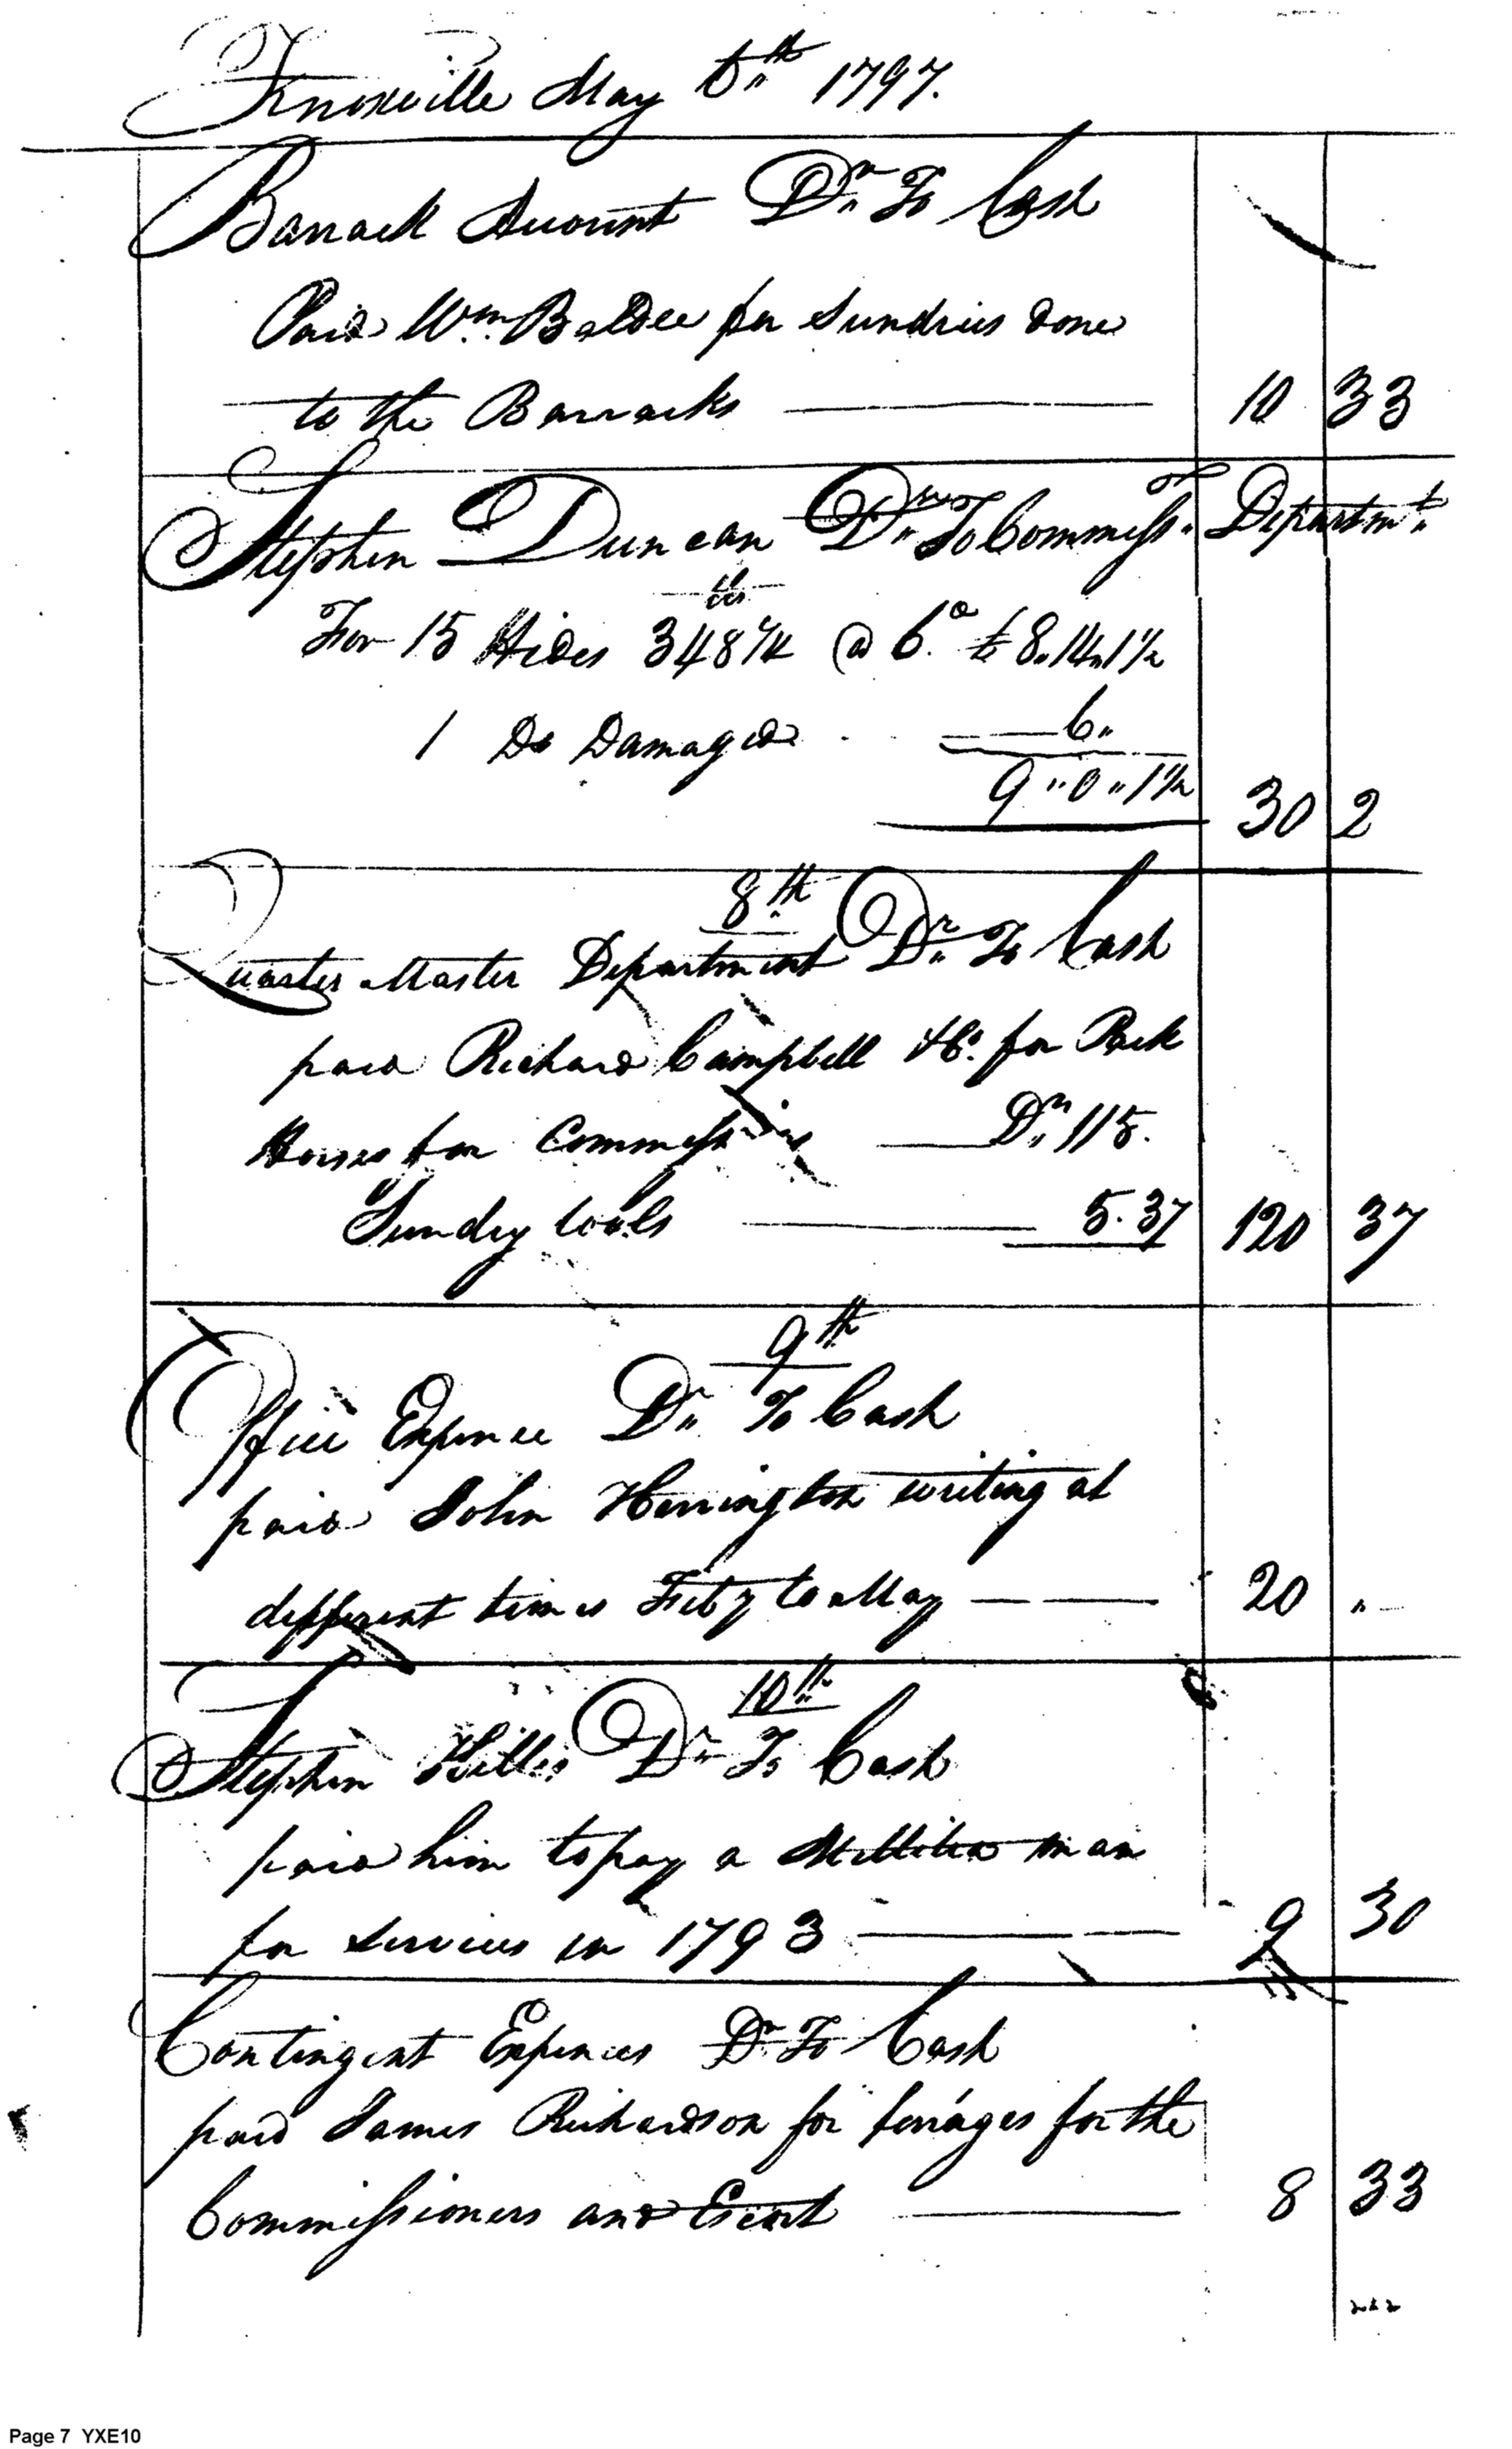 Knoxville May 6th 1797.
Barrack Account Dr. To Cash
Paid Wm. for Sundries done
to the Barracks 10 33
Stephen Duncan Dr. To Commissy. Departmt.
lbs
For 15 Hides 348 1/4 @ 6d. £8.14.1 1/2
1 Do Damaged 6"
9"0"1 1/2 30 2
8th
Quarter Master Department Dr. To Cash
paid Richard Campbell &Co. for Pack
Horses for Drs. 115.
Sundry tools 5.37 120 37
9th
Office Expence Dr. To Cash
paid John Herrington writing at
different times Feby to May 20 "
10th
Stephen Hillis Dr. To Cash
paid him to pay a Millitia man
for services in 1793 9 30
Contingent Expences Dr. To Cash
paid James Richardson for ferriages for the
Commissioners and Escort 8 33
Page 7 YXE10